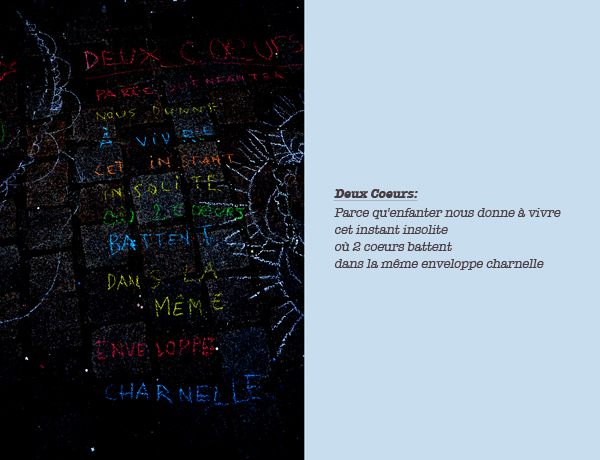 DEUX CŒURS
PARCE QU'ENFANTER
NOUS DONNE
À VIVRE
CET INSTANT
INSOLITE
OÙ 2 CŒURS
BATTENT
DANS LA
MÊME
ENVELOPPE
CHARNELLE
Deux Coeurs:
Parce qu'enfanter nous donne à vivre
cet instant insolite
où 2 coeurs battent
dans la même enveloppe charnelle